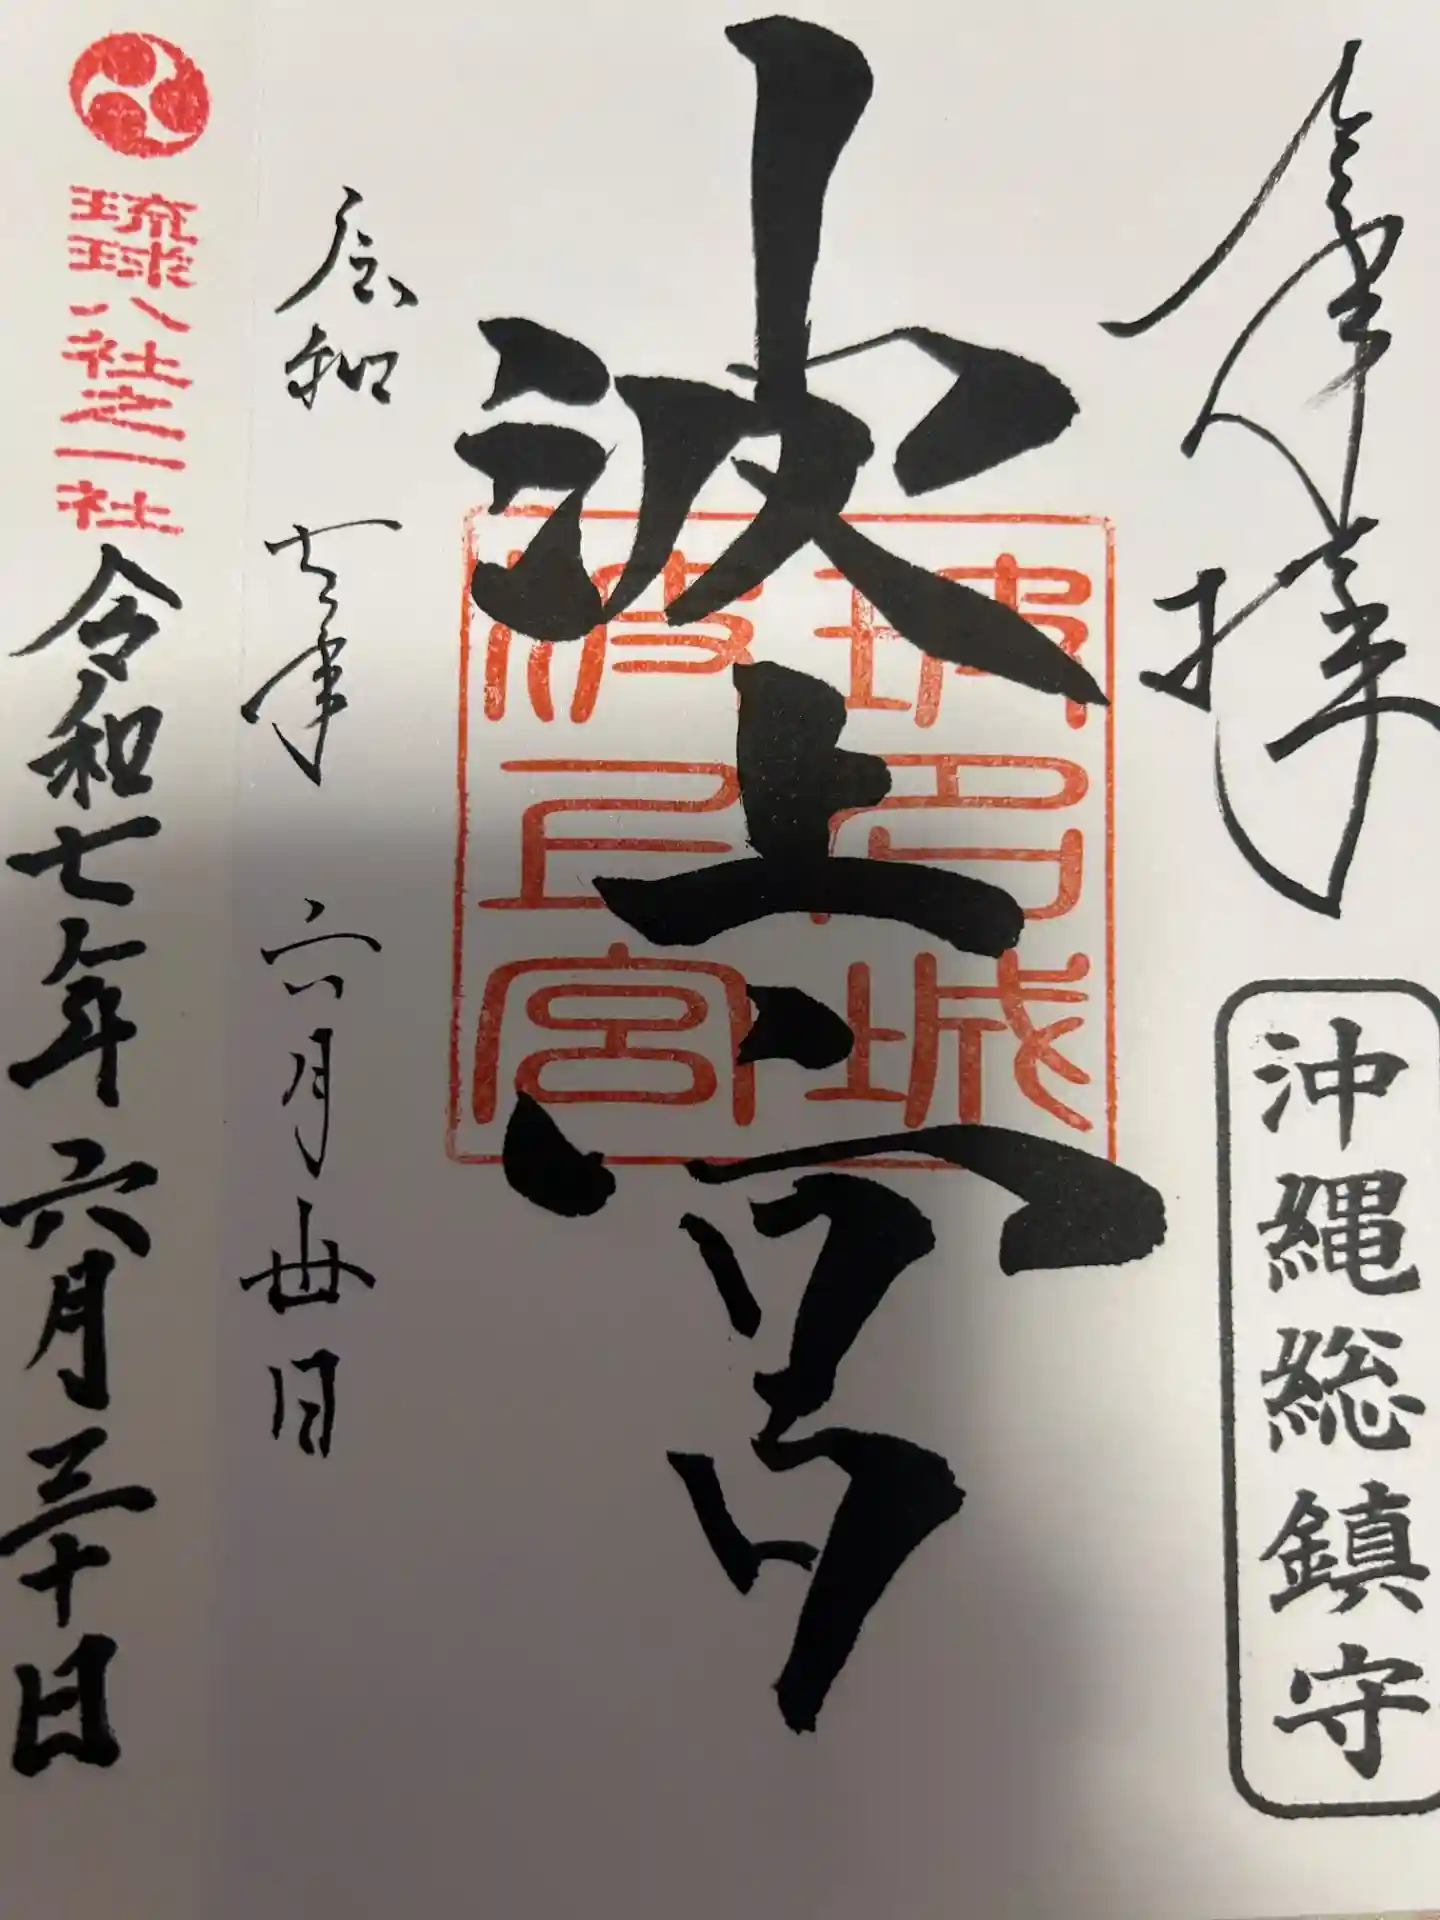 奉拝
沖縄総鎮守
波上宮
琉球那覇
波上宮
令和七年六月卅日
琉球八社之一社
令和七年六月三十日